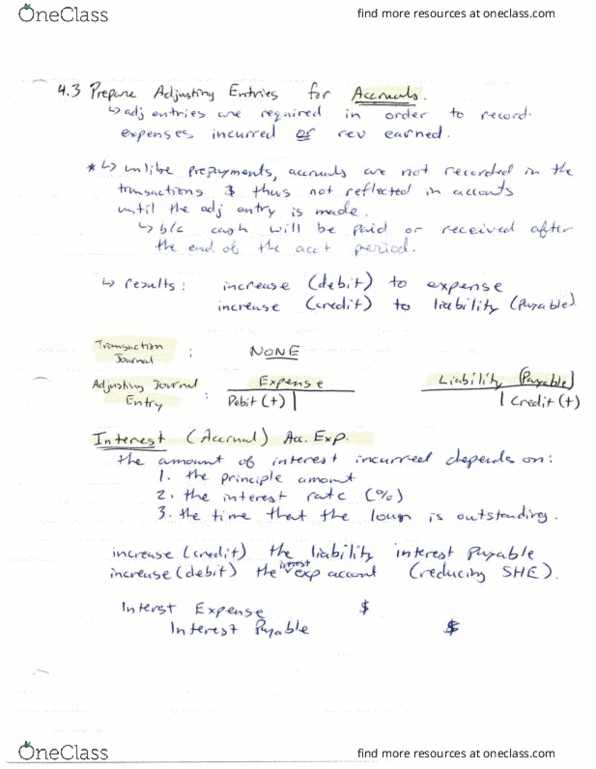 OneClass
find more resources at oneclass.com
4.3 Prepare Adjusting Entries for Accruals.
↳ adj entries are required in order to record
expenses incurred or rev earned.
* ↳ unlike prepayments, accruals are not recorded in the
transactions & thus not reflected in accounts
until the adj entry is made.
↳ b/c cash will be paid or received after
the end of the acct period.
↳ results: increase (debit) to expense
increase (credit) to liability (payable)
Transaction
Journal : NONE
Adjusting Journal Expense Liability (Payable)
Entry : Debit (+) Credit (+)
Interest (Accrual) Acc. Exp.
the amount of interest incurreed depends on:
1. the principle amount
2. the interest rate (%)
3. the time that the loan is outstanding.
increase (credit) the liability interest Payable
increase (debit) the interest exp account (reducing SHE).
Interst Expense $
Interest Payable $
OneClass
find more resources at oneclass.com